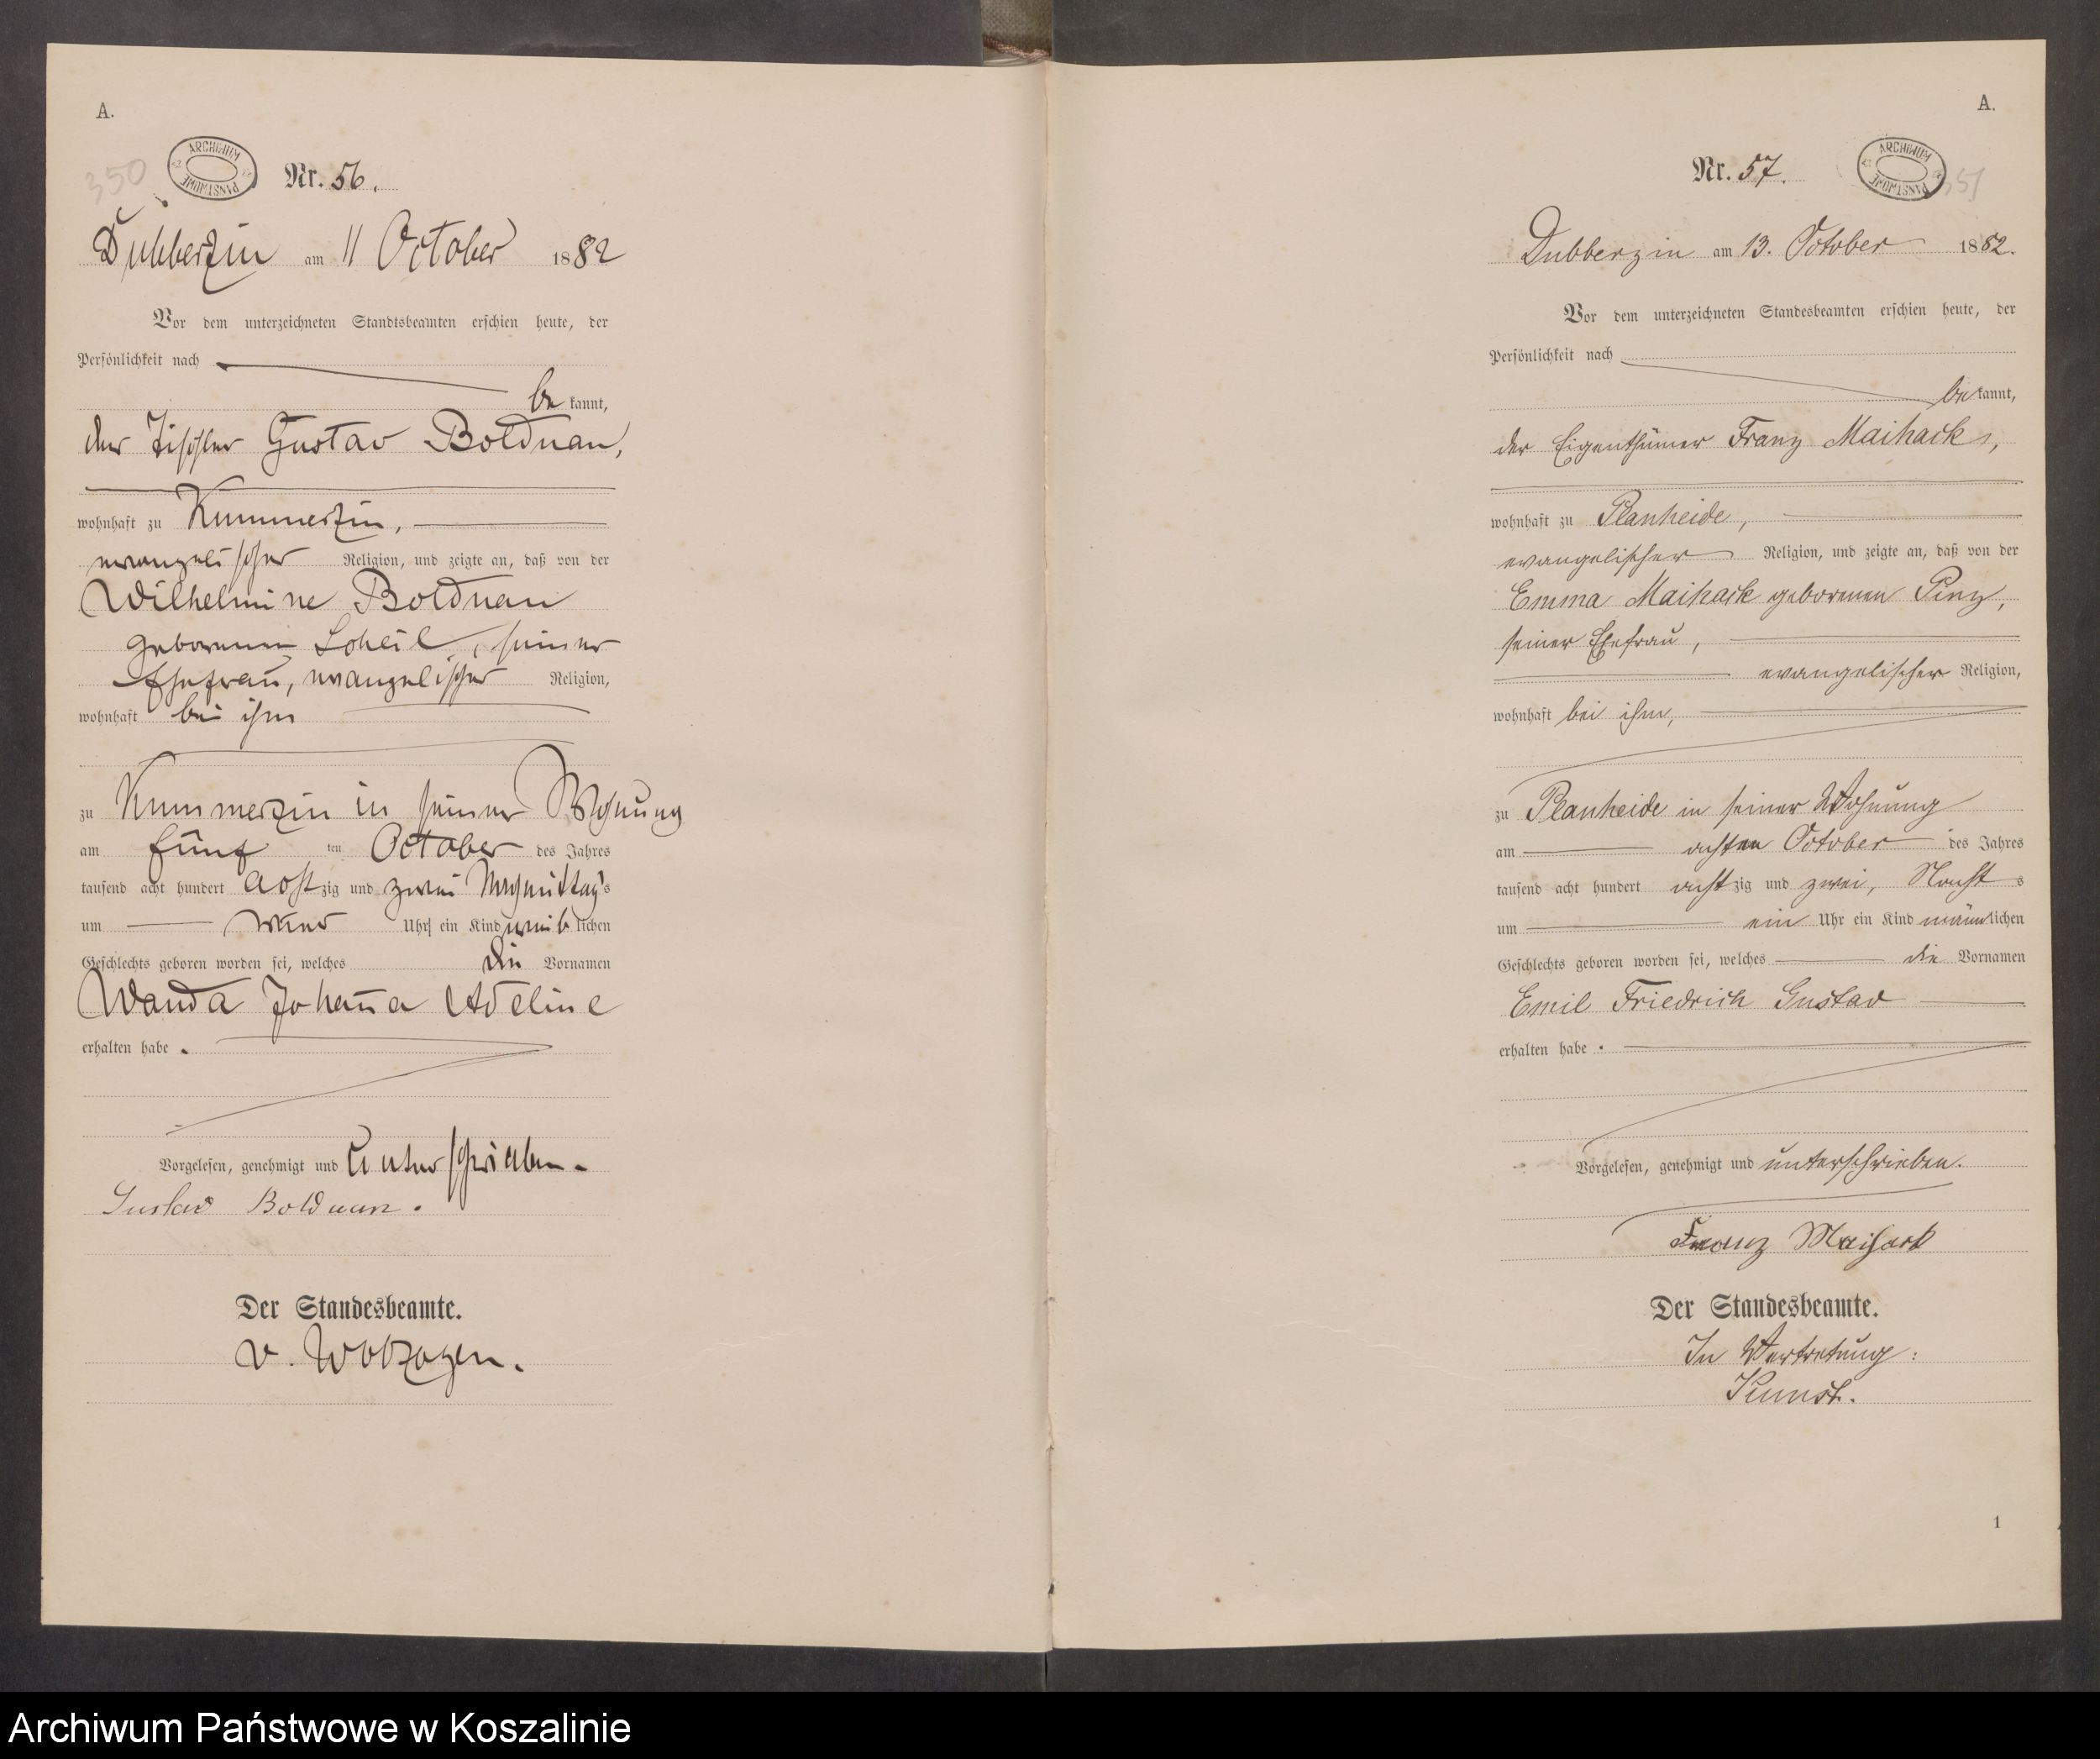 A.
350
ARCHIWUM PAŃSTWOWE
Nr. 56.
Dubberzin am 11 October 1882
Vor dem unterzeichneten Standtsbeamten erschien heute, der
Persönlichkeit nach
be kannt,
der Tischler Gustav Bolduan,
wohnhaft zu Kummerzin,
evangelischer Religion, und zeigte an, daß von der
Wilhelmine Bolduan
geborenen Loheil, seiner
Ehefrau, evangelischer Religion,
wohnhaft bei ihm
zu Kummerzin in seiner Wohnung
am fünf ten October des Jahres
tausend acht hundert acht zig und zwei Nachmittags
um vier Uhr ein Kind weib lichen
Geschlechts geboren worden sei, welches die Vornamen
Wanda Johanna Adeline
erhalten habe.
Vorgelesen, genehmigt und unterschrieben.
Gustav Bolduan.
Der Standesbeamte.
v. Wolzogen.
A.
Nr. 57.
ARCHIWUM PAŃSTWOWE
351
Dubberzin am 13. October 1882.
Vor dem unterzeichneten Standesbeamten erschien heute, der
Persönlichkeit nach
be kannt,
der Eigenthümer Franz Maihack,
wohnhaft zu Planheide,
evangelischer Religion, und zeigte an, daß von der
Emma Maihack geborenen Pinz,
seiner Ehefrau,
evangelischer Religion,
wohnhaft bei ihm,
zu Planheide in seiner Wohnung
am achten October des Jahres
tausend acht hundert acht zig und zwei, Nacht s
um ein Uhr ein Kind männlichen
Geschlechts geboren worden sei, welches die Vornamen
Emil Friedrich Gustav
erhalten habe.
Vorgelesen, genehmigt und unterschrieben.
Franz Maihack
Der Standesbeamte.
In Vertretung:
Kunst.
1
Archiwum Państwowe w Koszalinie